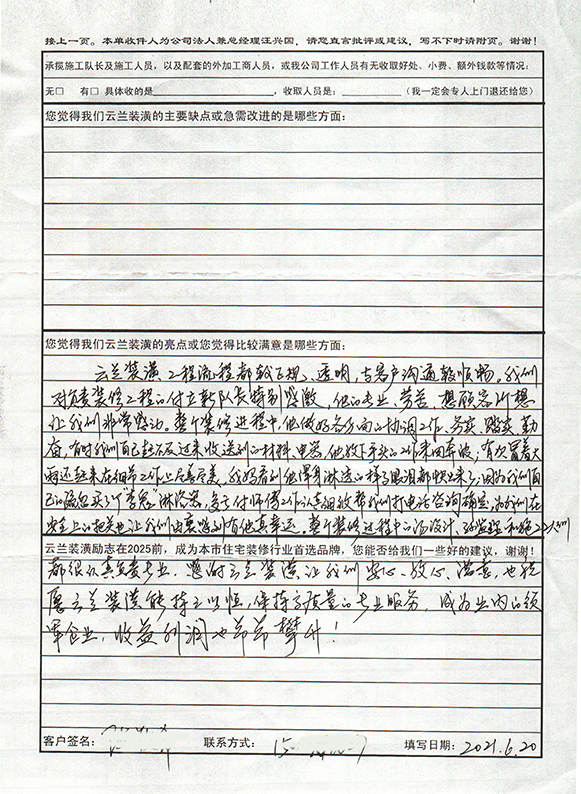 接上一页。本单收件人为公司法人兼总经理汪兴国，请您直言批评或建议，写不下时请附页。谢谢！
承揽施工队长及施工人员，以及配套的外加工商人员，或我公司工作人员有无收取好处、小费、额外钱款等情况：
无□ 有□ 具体收的是 ，收取人员是： （我一定会专人上门退还给您）
您觉得我们云兰装潢的主要缺点或急需改进的是哪些方面：
您觉得我们云兰装潢的亮点或您觉得比较满意是哪些方面：
云兰装潢工程流程都较正规、透明，与客户沟通较顺畅。我们
对负责装修工程的付立新队长特别感激，他的专业、劳苦、想顾客所想
让我们非常感动。整个装修进程中，他做好各方面的协调工作，务实、踏实、勤
奋，有时我们自己赶不及过来收送到的材料、电器，他放下手头的工作来回奔波，有次冒着大
雨还赶来在细节工作上尽善尽美，我好看到他浑身淋透的样子眼泪都快出来了；因为我们自
己的疏忽买了 淋浴器，多亏付师傅工作认真细致帮我们打电话咨询确定，为我们在
安全上的把关也让我们由衷感到有他真幸运。整个装修过程中的汤设计、孙监理和施工人员们
云兰装潢励志在2025前，成为本市住宅装修行业首选品牌，您能否给我们一些好的建议，谢谢！
都很认真负责专业，感谢云兰装潢让我们安心、放心、满意，也祝
愿云兰装潢能持之以恒，保持高质量的专业服务，成为业内的领
军企业，收益利润也节节攀升！
客户签名： 联系方式： 填写日期：2021.6.20